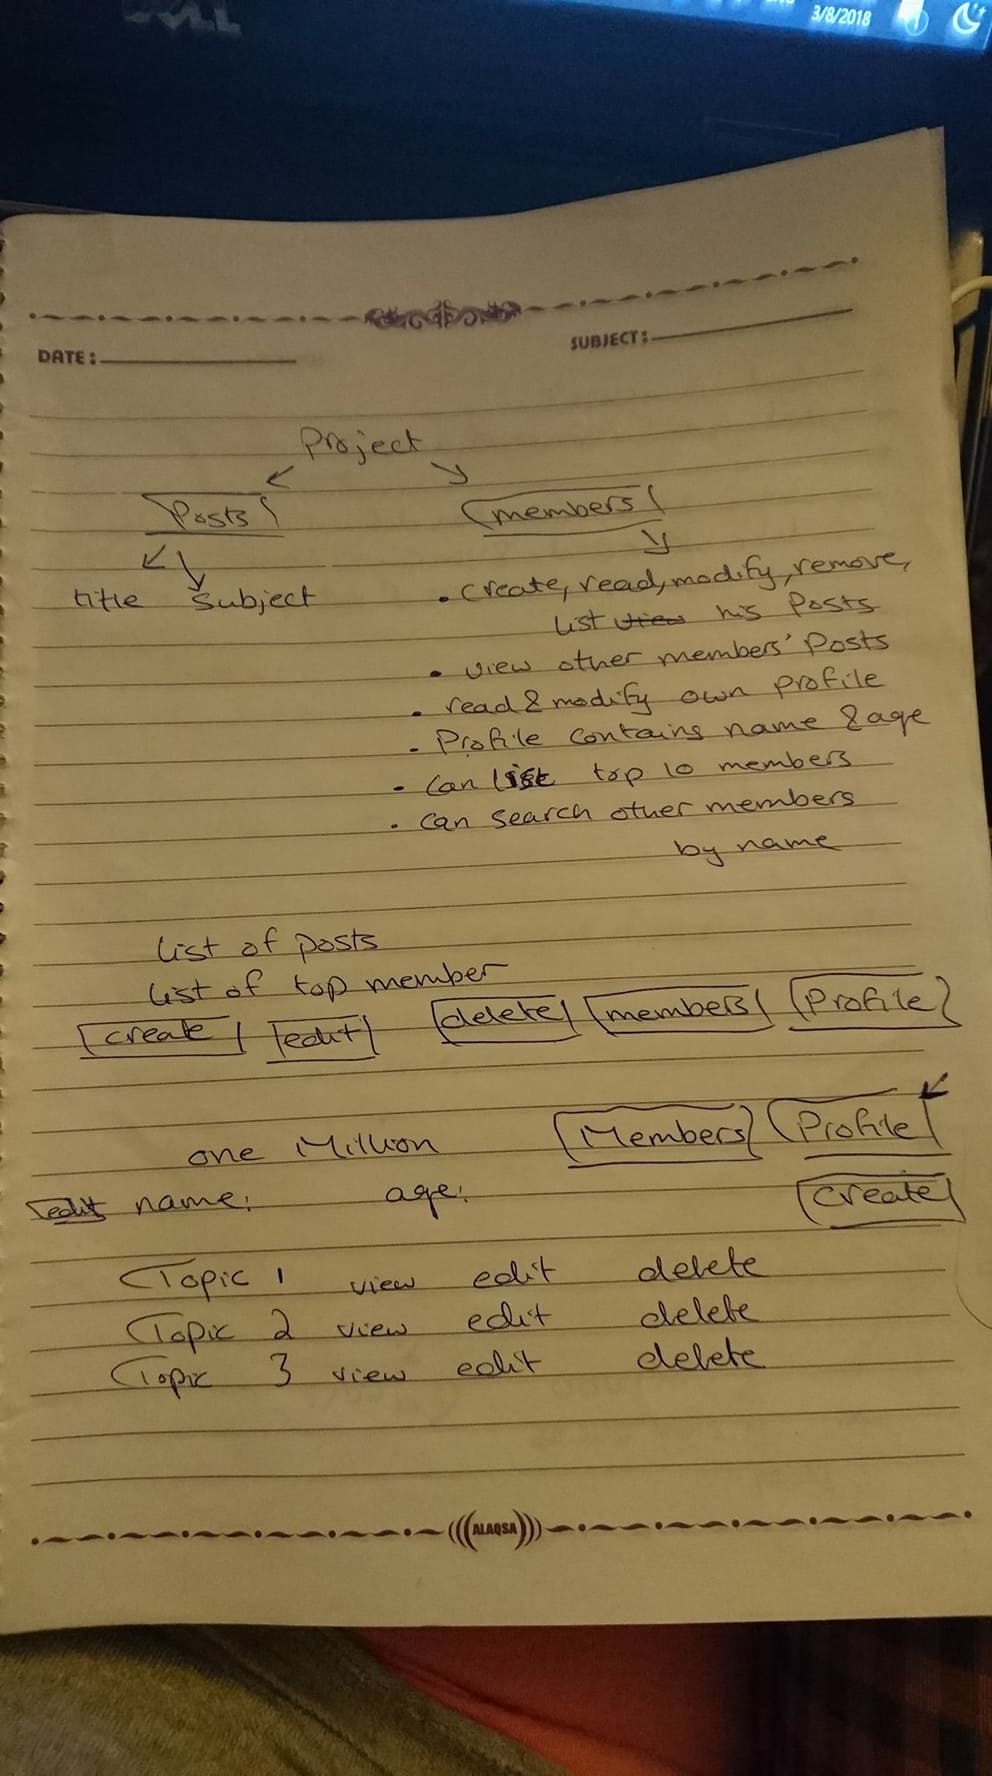 3/8/2018
DELL
DATE:
SUBJECT:
Project
Posts members
title Subject
• Create, read, modify, remove,
list view his Posts
• view other members' Posts
• read & modify own profile
• Profile contains name & age
• Can list top 10 members
• can search other members
by name
list of posts
list of top member
create edit delete members Profile
one Million Members Profile
edit name: age: Create
Topic 1 view edit delete
Topic 2 view edit delete
Topic 3 view edit delete
ALAQSA